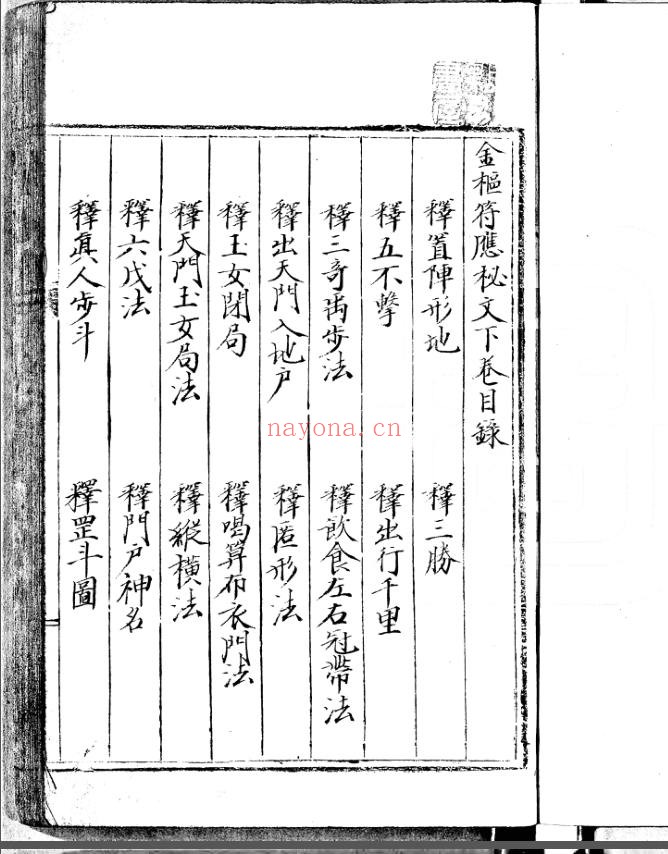 金樞符應秘文下卷目錄
釋置陣形地　釋三勝
釋五不擊　釋出行千里
釋三奇禹步法　釋飲食左右冠帶法
釋出天門入地戶　釋匿形法
釋玉女閉局　釋喝算布衣門法
釋天門玉女局法　釋縱橫法
釋六戊法　釋門戶神名
釋真人步斗　釋罡斗圖
nayona.cn